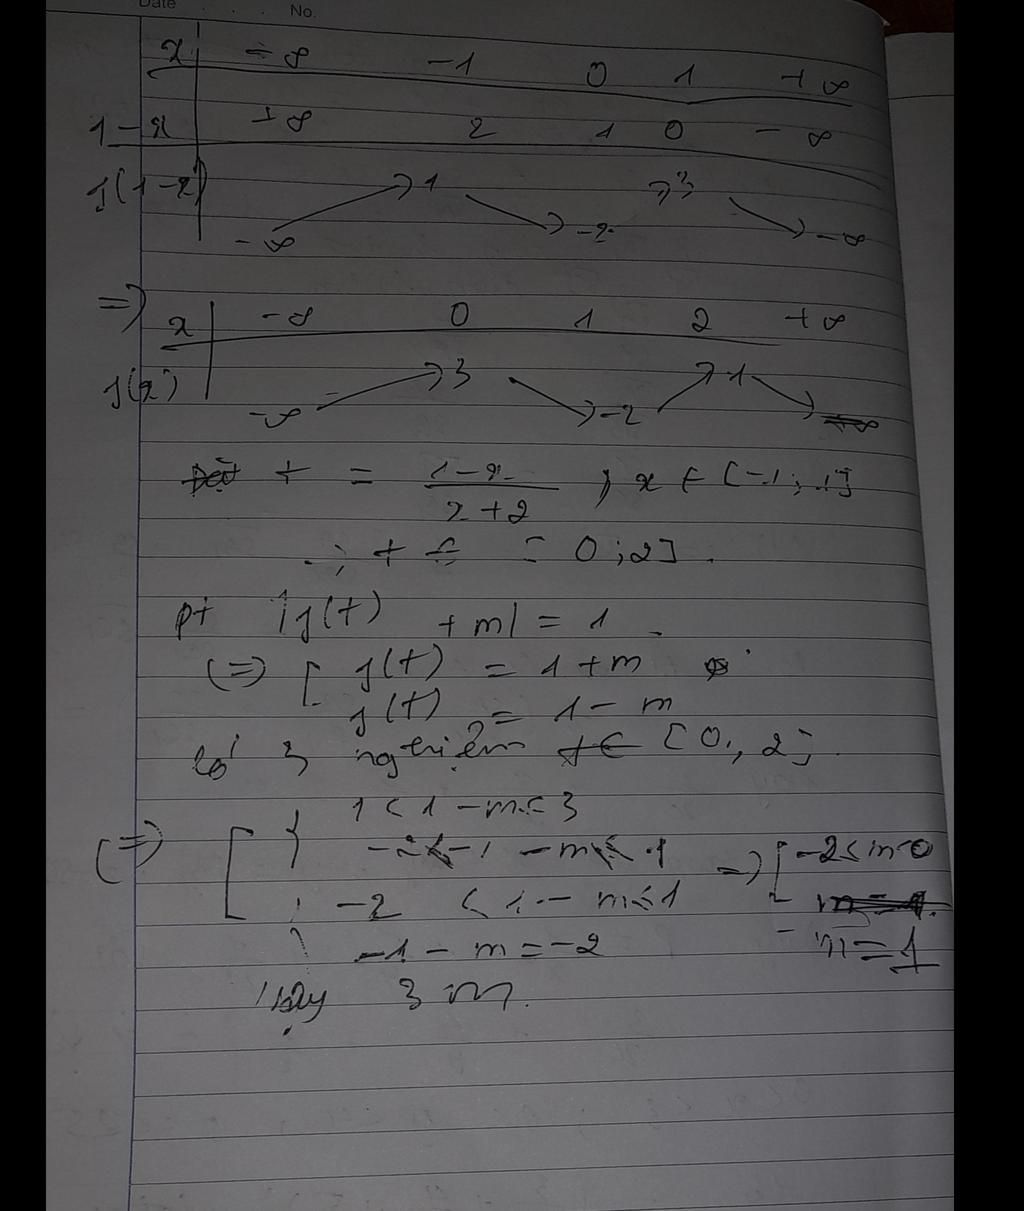 Date No.
x -∞ -1 0 1 +∞
1-x +∞ 2 1 0 -∞
f(1-x) -∞ → 1 → -2 → 3 → -∞
=> x -∞ 0 1 2 +∞
f(x) -∞ → 3 → -2 → 1 →
t = \frac{1-x}{x+2} ; x ∈ [-1; 1]
t ∈ [0; 2].
pt |f(t) + m| = 1
(=) [ f(t) = 1 + m
f(t) = 1 - m
có 3 nghiệm t ∈ [0, 2].
(=) [ { 1 < 1 - m < 3
-2 < -1 - m < 1 => [ -2 < m < 0
-2 < 1 - m < 1
-1 - m = -2 m = 1
Vậy 3 m.